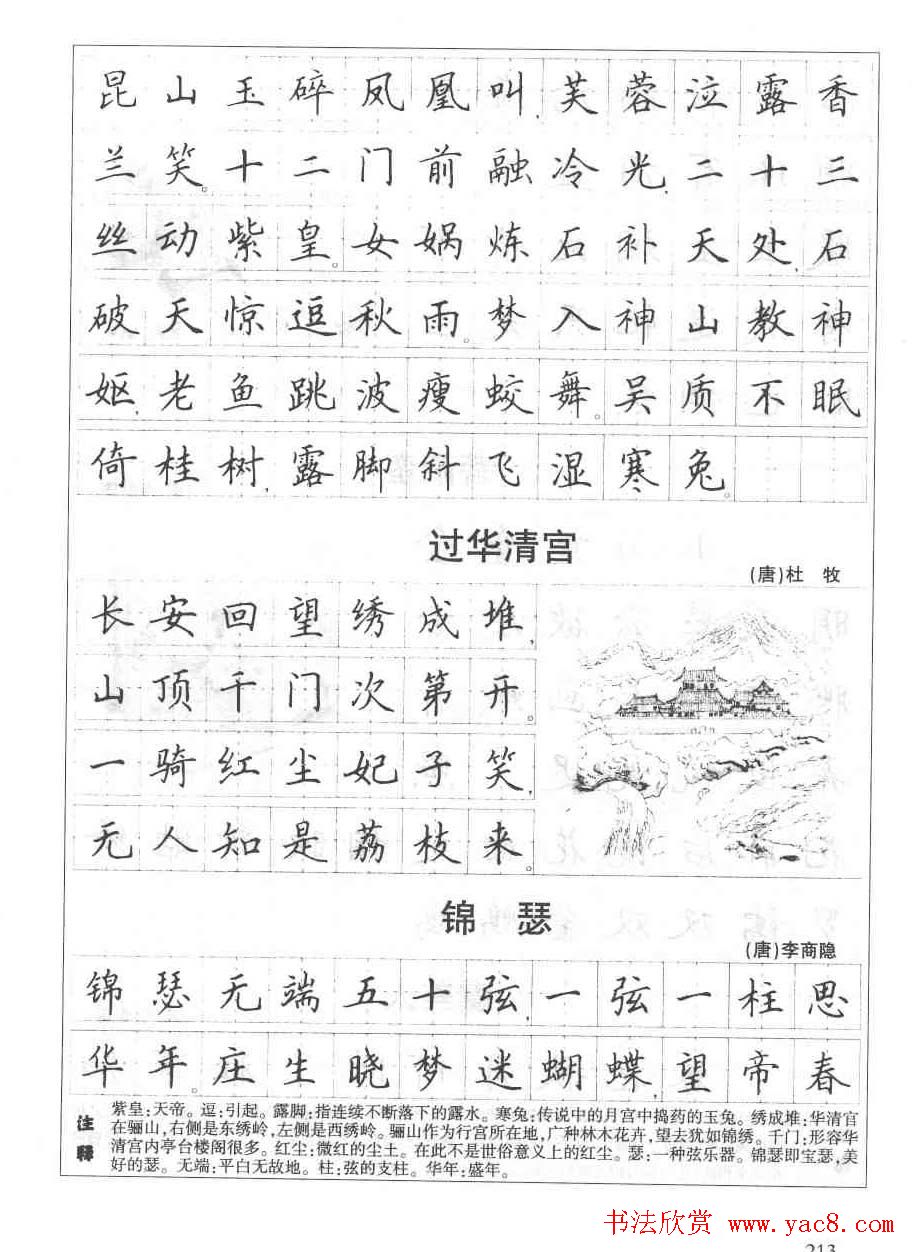 昆山玉碎凤凰叫,芙蓉泣露香
兰笑。十二门前融冷光,二十三
丝动紫皇。女娲炼石补天处,石
破天惊逗秋雨。梦入神山教神
妪,老鱼跳波瘦蛟舞。吴质不眠
倚桂树,露脚斜飞湿寒兔。
过华清宫
(唐)杜 牧
长安回望绣成堆,
山顶千门次第开。
一骑红尘妃子笑,
无人知是荔枝来。
锦 瑟
(唐)李商隐
锦瑟无端五十弦,一弦一柱思
华年。庄生晓梦迷蝴蝶,望帝春
注释
紫皇:天帝。逗:引起。露脚:指连续不断落下的露水。寒兔:传说中的月宫中捣药的玉兔。绣成堆:华清宫
在骊山,右侧是东绣岭,左侧是西绣岭。骊山作为行宫所在地,广种林木花卉,望去犹如锦绣。千门:形容华
清宫内亭台楼阁很多。红尘:微红的尘土。在此不是世俗意义上的红尘。瑟:一种弦乐器。锦瑟即宝瑟,美
好的瑟。无端:平白无故地。柱:弦的支柱。华年:盛年。
书法欣赏 www.yac8.com
213